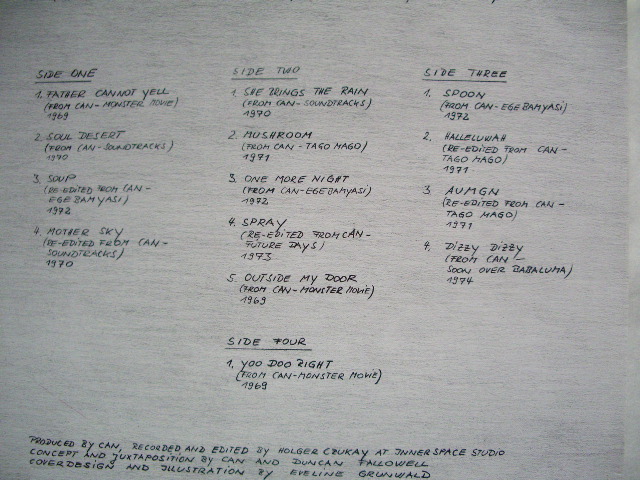 SIDE ONE
1. FATHER CANNOT YELL
(FROM CAN-MONSTER MOVIE)
1969
2. SOUL DESERT
(FROM CAN-SOUNDTRACKS)
1970
3. SOUP
(RE-EDITED FROM CAN-
EGE BAMYASI)
1972
4. MOTHER SKY
(RE-EDITED FROM CAN-
SOUNDTRACKS)
1970
SIDE TWO
1. SHE BRINGS THE RAIN
(FROM CAN-SOUNDTRACKS)
1970
2. MUSHROOM
(FROM CAN-TAGO MAGO)
1971
3. ONE MORE NIGHT
(FROM CAN-EGE BAMYASI)
1972
4. SPRAY
(RE-EDITED FROM CAN-
FUTURE DAYS)
1973
5. OUTSIDE MY DOOR
(FROM CAN-MONSTER MOVIE)
1969
SIDE THREE
1. SPOON
(FROM CAN-EGE BAMYASI)
1972
2. HALLELUWAH
(RE-EDITED FROM CAN-
TAGO MAGO)
1971
3 AUMGN
(RE-EDITED FROM CAN-
TAGO MAGO)
1971
4. DIZZY DIZZY
(FROM CAN-
SOON OVER BABALUMA)
1974
SIDE FOUR
1. YOO DOO RIGHT
(FROM CAN-MONSTER MOVIE)
1969
PRODUCED BY CAN, RECORDED AND EDITED BY HOLGER CZUKAY AT INNERSPACE STUDIO
CONCEPT AND JUXTAPOSITION BY CAN AND DUNCAN FALLOWELL
COVERDESIGN AND ILLUSTRATION BY EVELINE GRUNWALD